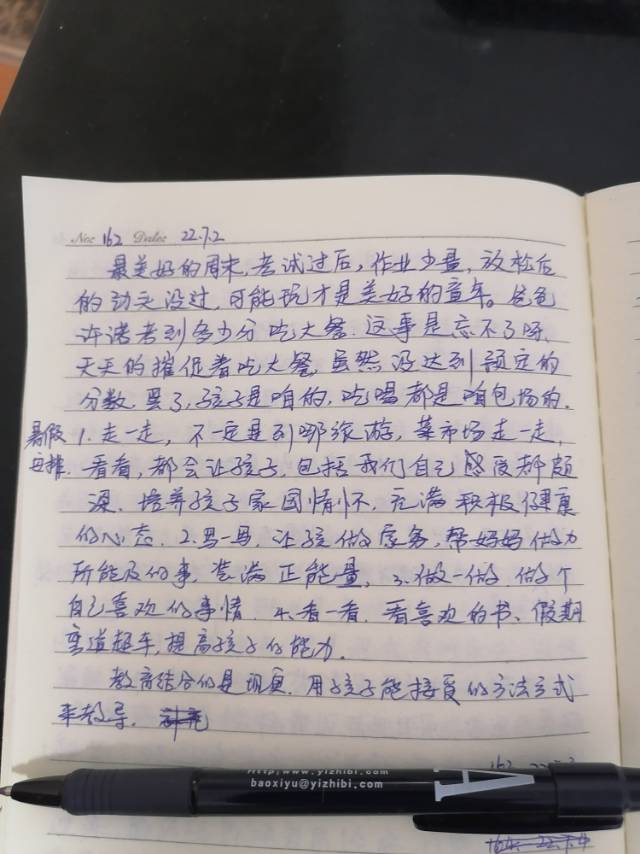 No: 162 Date: 22.7.2
最美好的周末,考试过后,作业少量,放松后
的劲头没过,可能玩才是美好的童年。爸爸
许诺考到多少分吃大餐.这事是忘不了呀.
天天的摧促着吃大餐.虽然没达到预定的
分数.罢了,孩子是咱的,吃喝都是咱包场的.
暑假 1.走一走,不一定是到哪旅游,菜市场走一走,
安排 看看,都会让孩子,包括我们自己感受都颇
深.培养孩子家国情怀.充满积极健康
的心态. 2. 让孩做家务,帮妈妈做力
所能及的事,装满正能量, 3.做一做 做个
自己喜欢的事情. 4.看一看.看喜欢的书、假期
弯道超车,提高孩子的能力.
教育结合的是现实.用孩子能接受的方法方式
来教导.
http://www.yizhibi.com
baoxiyu@yizhibi.com
162 22.7.3